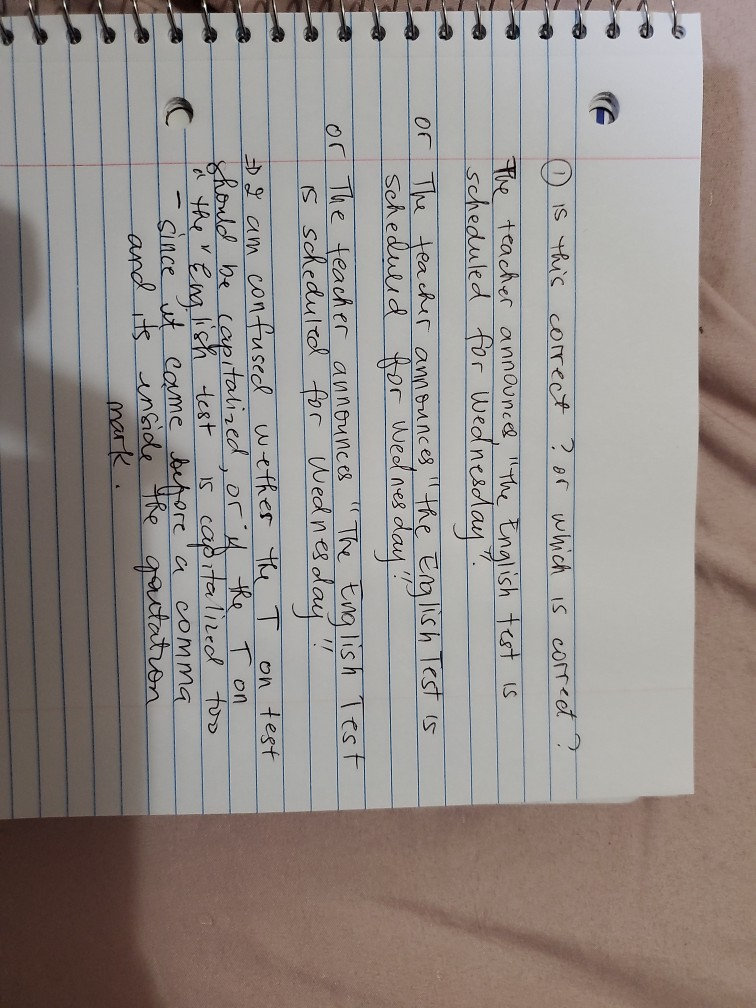 ① is this correct? or which is correct?
The teacher announces "the English test is
scheduled for Wednesday".
or The teacher announces "the English Test is
scheduled for Wednesday".
or The teacher announces "The English Test
is scheduled for Wednesday".
⇒ I am confused wether the T on test
should be capitalized, or if the T on
"the" English test is capitalized too
- since it came before a comma
and its inside the qoutation
mark.